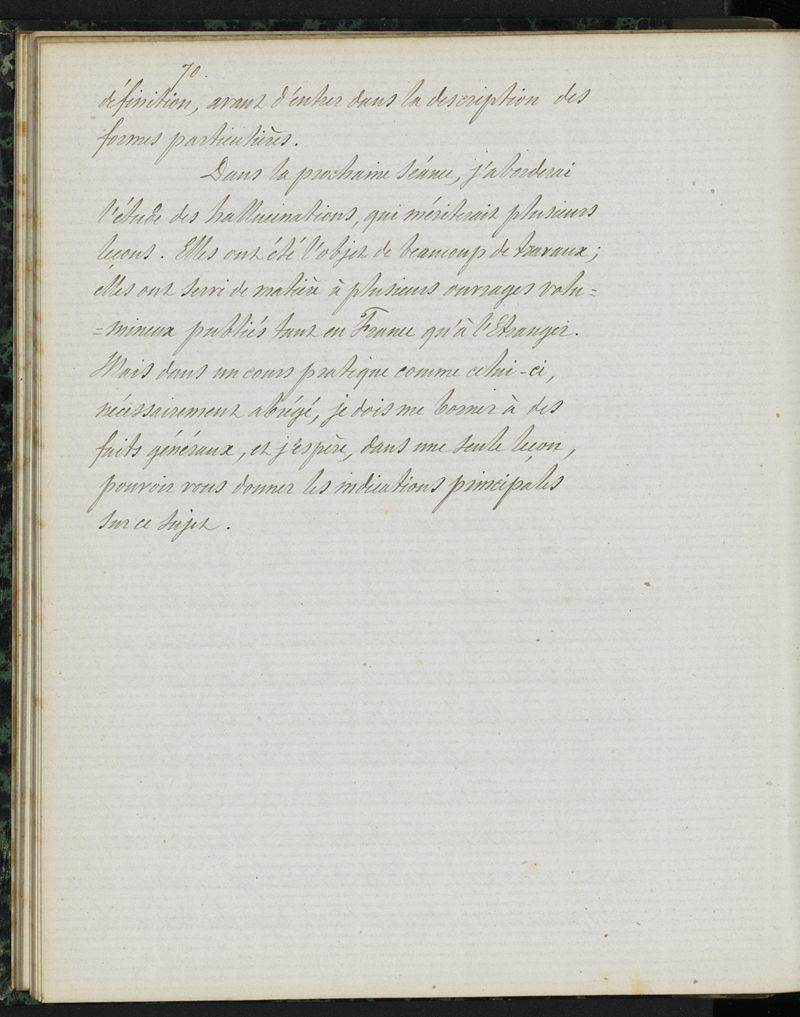 70.
définition, avant d'entrer dans la description des
formes particulières.
Dans la prochaine séance, j'aborderai
l'étude des hallucinations, qui mériterait plusieurs
leçons. Elles ont été l'objet de beaucoup de travaux ;
elles ont servi de matière à plusieurs ouvrages volu=
=mineux publiés tant en France qu'à l'Etranger.
Mais dans un cours pratique comme celui-ci,
nécessairement abrégé, je dois me borner à des
faits généraux, et j'espère, dans une seule leçon,
pouvoir vous donner les indications principales
sur ce sujet.